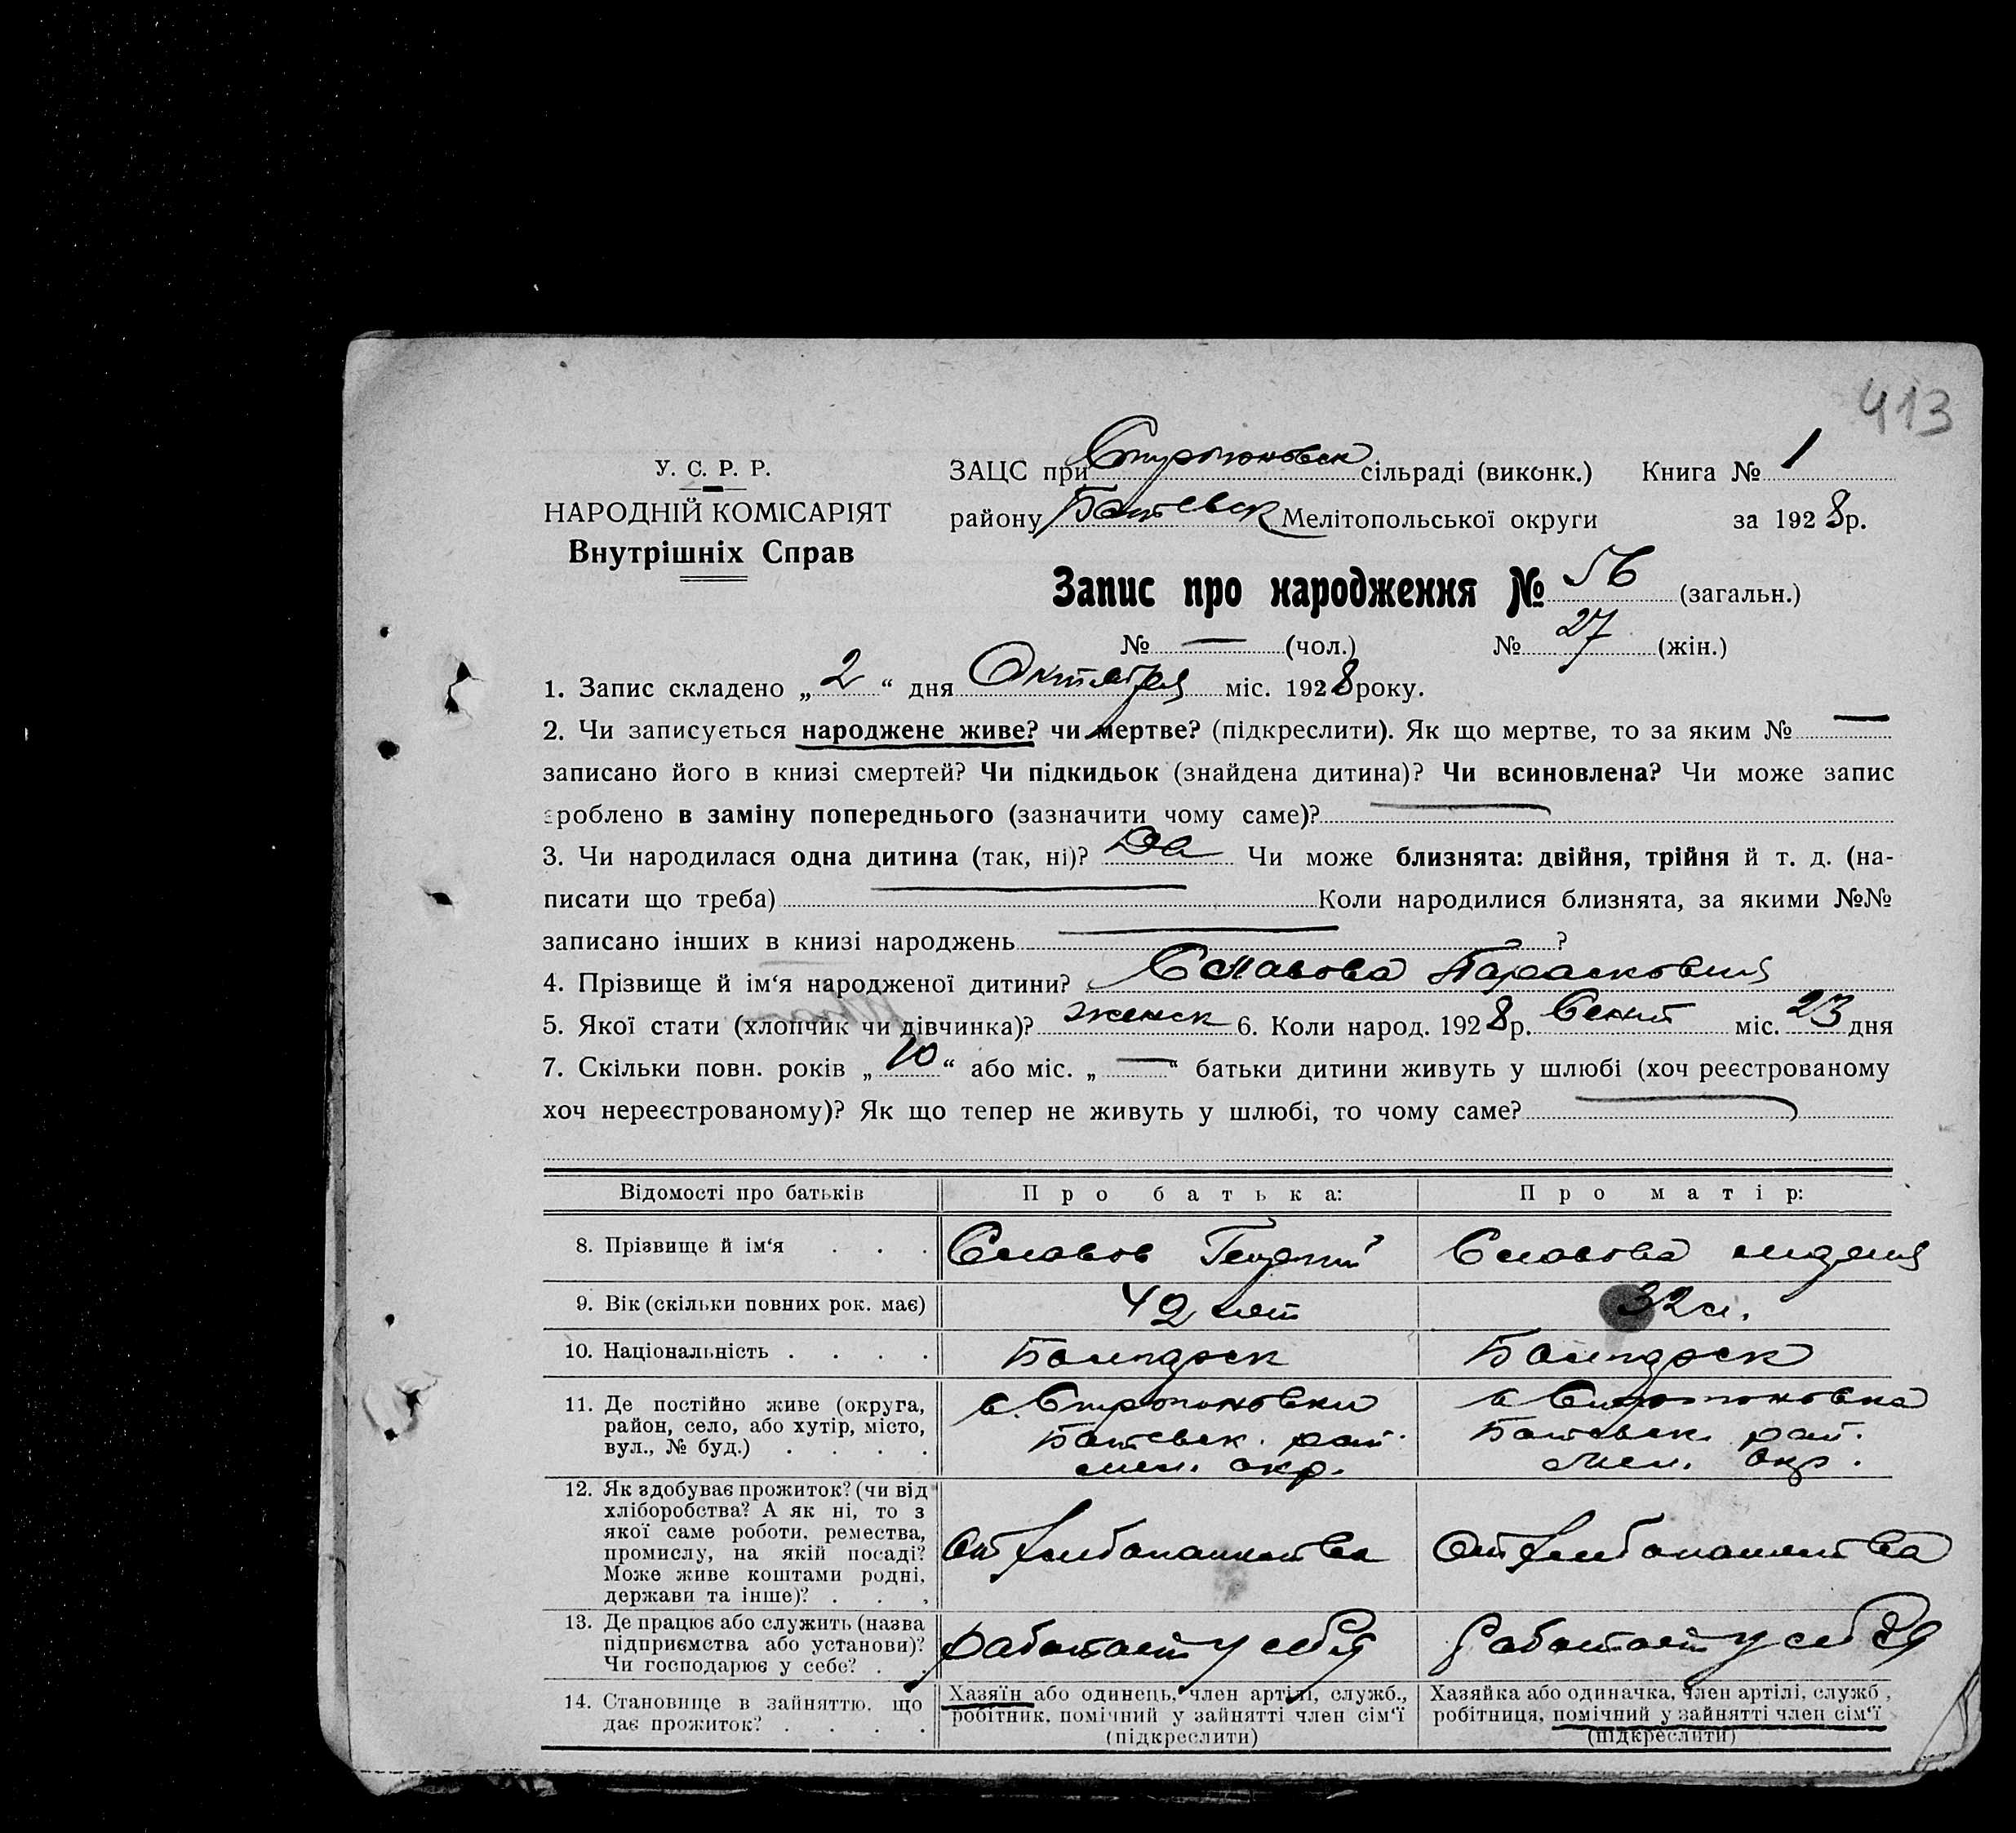 413
У. С. Р. Р.
НАРОДНІЙ КОМІСАРІЯТ
Внутрішніх Справ
ЗАЦС при Строгоновск сільраді (виконк.) Книга № 1
району Ботевск Мелітопольської округи за 1928 р.
Запис про народження № 56 (загальн.)
№ — (чол.) № 27 (жін.)
1. Запис складено „2“ дня Октября міс. 1928 року.
2. Чи записується народжене живе? чи мертве? (підкреслити). Як що мертве, то за яким № —
записано його в книзі смертей? Чи підкидьок (знайдена дитина)? Чи всиновлена? Чи може запис
зроблено в заміну попереднього (зазначити чому саме)? —
3. Чи народилася одна дитина (так, ні)? Да Чи може близнята: двійня, трійня й т. д. (на-
писати що треба) — Коли народилися близнята, за якими №№
записано інших в книзі народжень — ?
4. Прізвище й ім‘я народженої дитини? Славова Парасковия
5. Якої стати (хлопчик чи дівчинка)? женск 6. Коли народ. 1928 р. Сент міс. 23 дня
7. Скільки повн. років „10“ або міс. „—“ батьки дитини живуть у шлюбі (хоч реєстрованому
хоч нереєстрованому)? Як що тепер не живуть у шлюбі, то чому саме? —
Відомості про батьків Про батька: Про матір:
8. Прізвище й ім‘я . . . Славов Георгий Славова
9. Вік (скільки повних рок. має) 42 лет 32 л.
10. Національність . . . . Болгарск Болгарск
11. Де постійно живе (округа,
район, село, або хутір, місто,
вул., № буд.) . . . .
с. Строгоновки
Ботевск. рай.
мел. окр.
с Строгоновка
Ботевск. рай.
Мел. окр.
12. Як здобуває прожиток? (чи від
хліборобства? А як ні, то з
якої саме роботи, ремества,
промислу, на якій посаді?
Може живе коштами родні,
держави та інше)? . . .
От хлебопашества От хлебопашества
13. Де працює або служить (назва
підприємства або установи)?
Чи господарює у себе? . .
работает у себя работает у себя
14. Становище в зайняттю, що
дає прожиток? . . . .
Хазяїн або одинець, член артілі, служб.,
робітник, помічний у зайнятті член сім‘ї
(підкреслити)
Хазяйка або одиначка, член артілі, служб.,
робітниця, помічний у зайнятті член сім‘ї
(підкреслити)